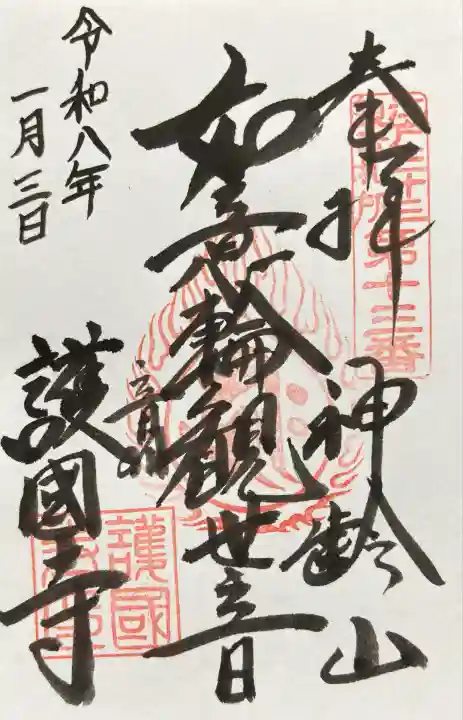 奉拝 神齢山
第十三番
如意輪観世音
音羽
護國寺
護國
令和八年
一月三日